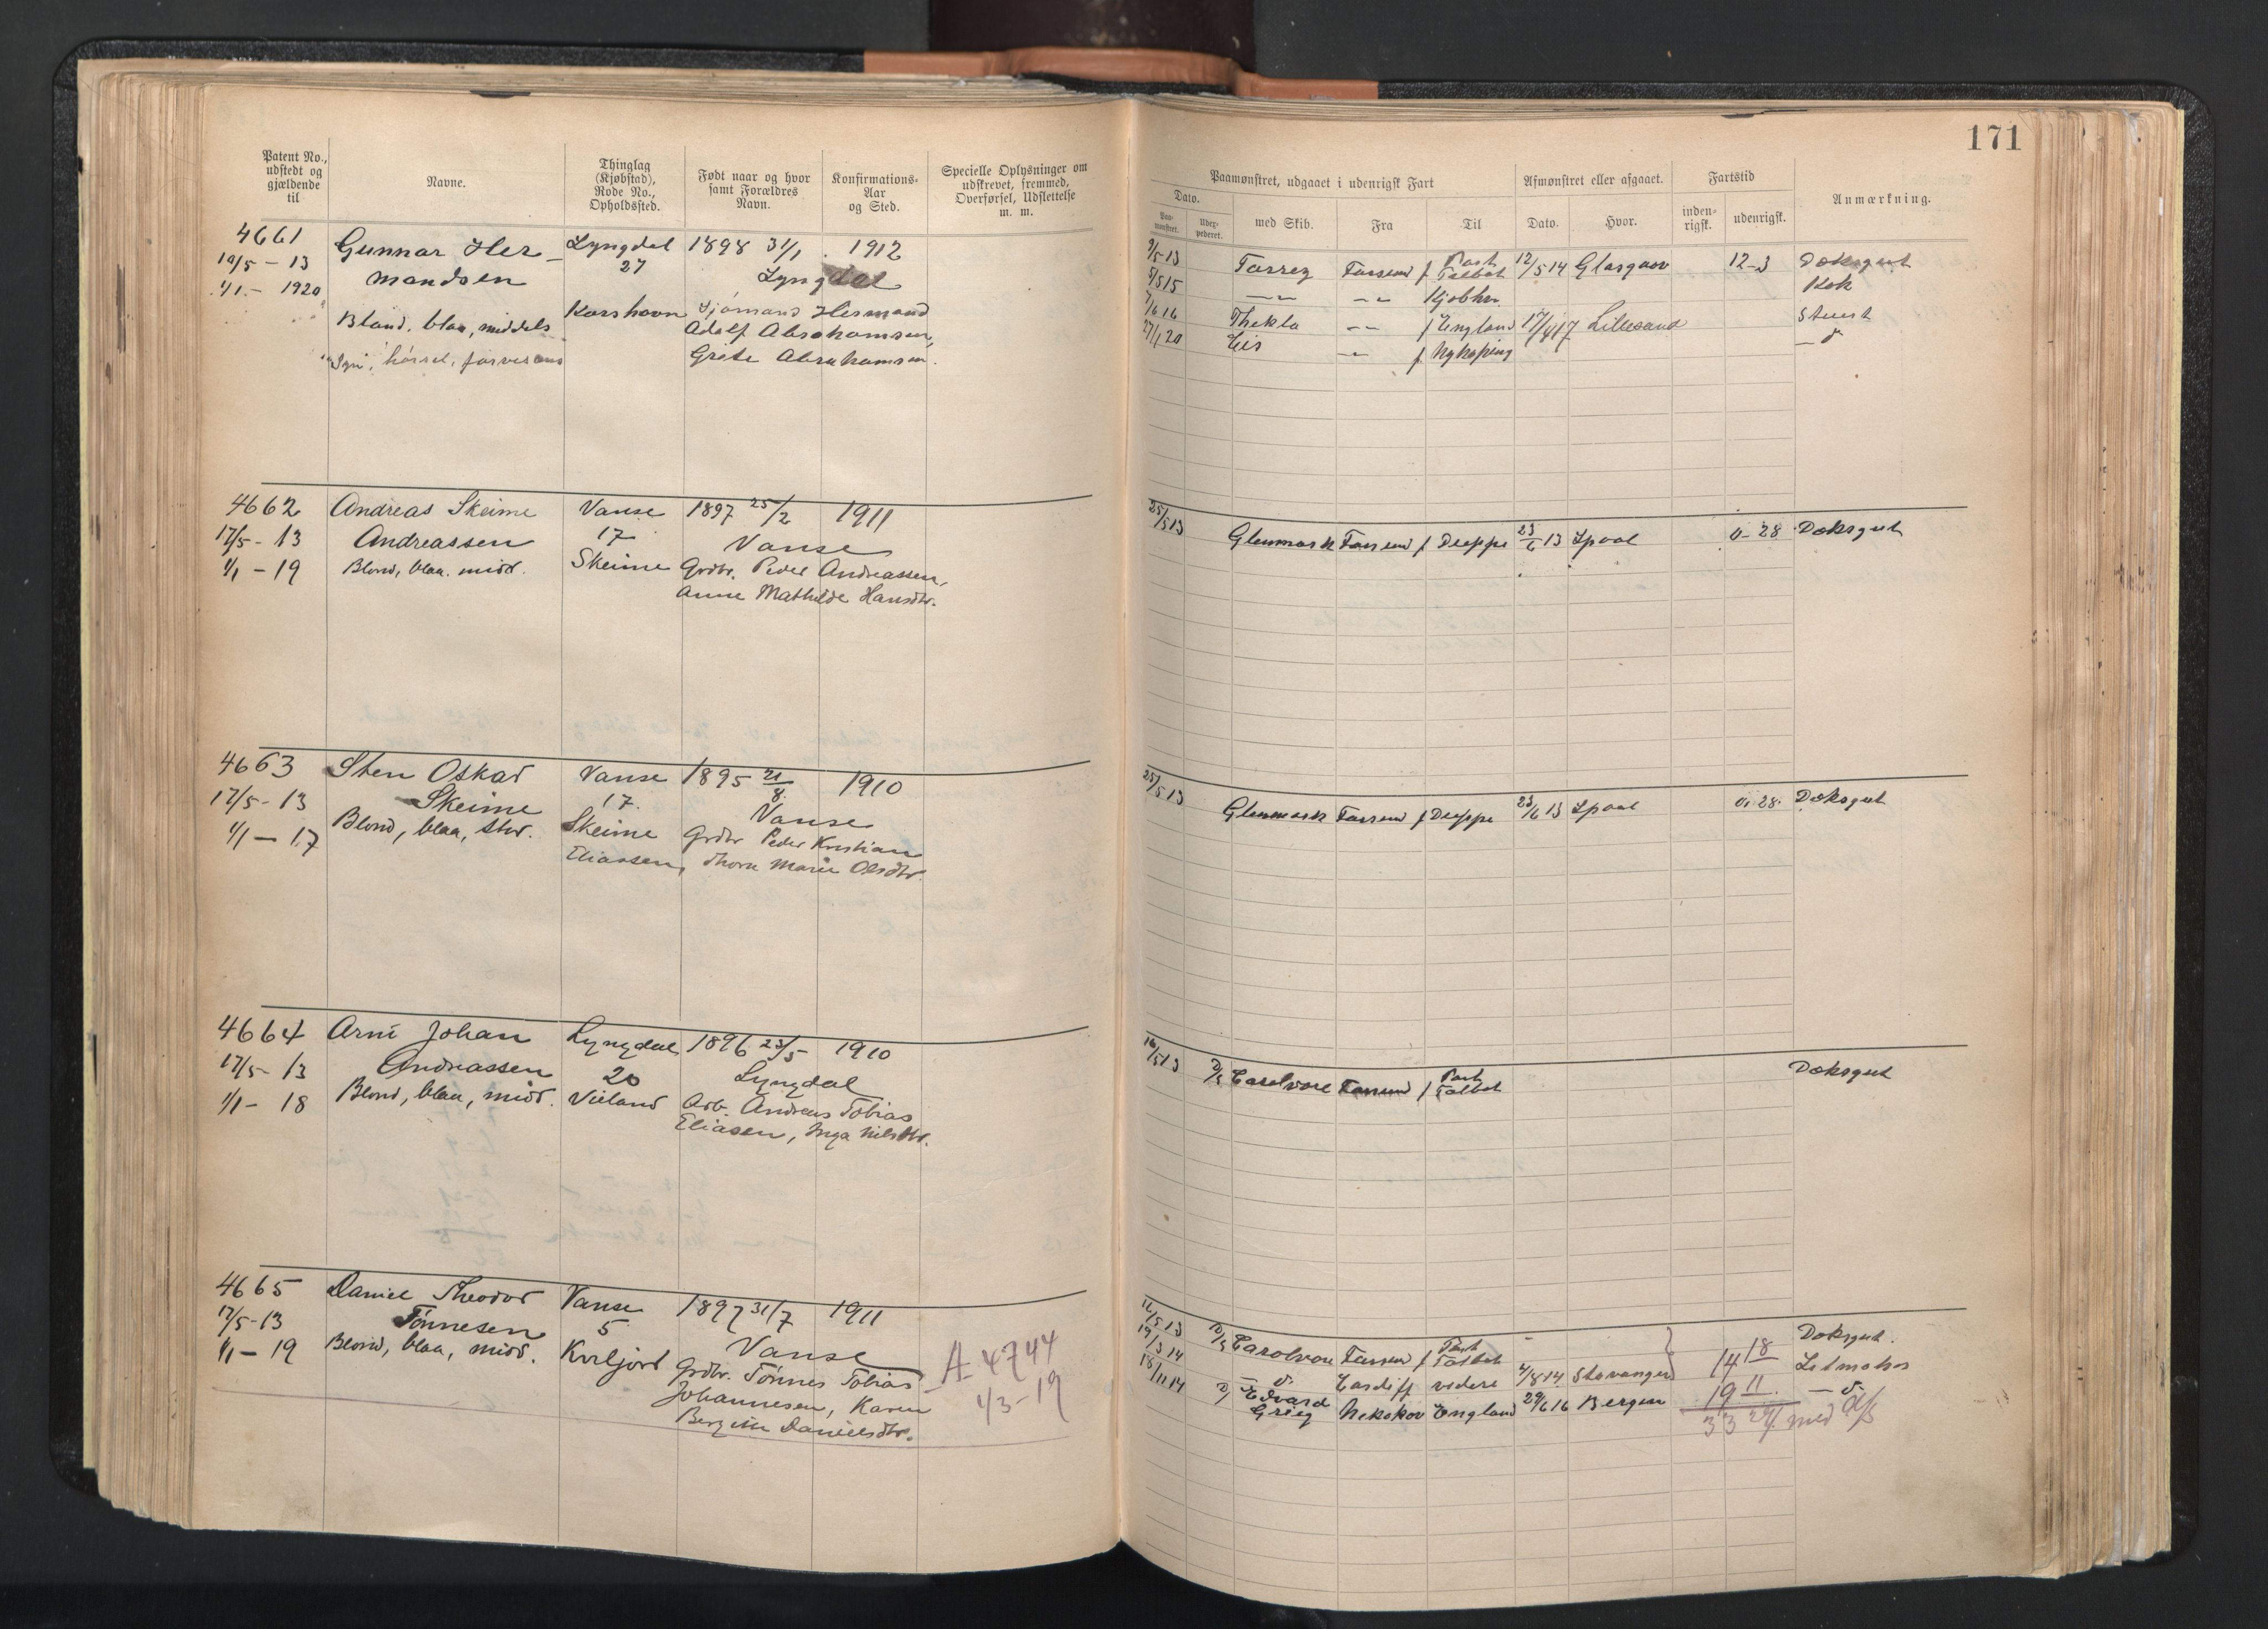 171
Patent No., udstedt og gjældende til
Navne.
Thinglag (Kjøbstad), Rode No., Opholdssted.
Født naar og hvor samt Forældres Navn.
Konfirmations-Aar og Sted.
Specielle Oplysninger om udskrevet, fremmed, Overførsel, Udslettelse m. m.
Paamønstret, udgaaet i udenrigsk Fart
Afmønstret eller afgaaet.
Fartstid
Anmærkning.
Dato.
Paa-mønstret.
med Skib.
Fra
Til
Dato.
Hvor.
inden-rigsk.
udenrigsk.
4661 Gunnar Her- Lyngdal 1898 31/1 1912
10/5 - 13 mandsen 27 Lyngdal
1/1 - 1920
Bland, blaa, middels Korshavn Sjømand Hermand
Adolf Abrahamsen,
Syn, hørsel, farvesans Grete Abrahamsen.
9/5 13 Farsund f Port Talbot 12/5 14 Glasgow 12-3 Doksgut
5/5 15 — " — — " — Kjøbhn. Kok
7/6 16 Thekla — " — f England 17/4 17 Lillesand Stuert
27/1 20 Eis — " — f Nykøping — d
4662 Andreas Skeime Vanse 1897 25/2 1911
17/5 - 13 Andreassen 17 Vanse
1/1 - 19 Blond, blaa. midd. Skeime Grdbr. Peder Andreassen,
Anne Mathilde Hansdtr.
25/5 13 Glenmark Farsund f Dieppe 23/6 13 0-28 Doksgut
4663 Sten Oskar Vanse 1895 21/8 1910
17/5 - 13 Skeime 17. Vanse
1/1 - 17 Blond, blaa, stor. Skeime Grdbr Peder Kristian
Eliassen, Thora Marie Olsdtr.
25/5 13 Glenmark Farsund f Dieppe 23/6 13 0-28 Doksgut
4664 Arne Johan Lyngdal 1896 23/5 1910
17/5 - 13 Andreassen 20 Lyngdal
1/1 - 18 Blond, blaa, midd. Vieland Arb. Andreas Tobias
Eliasen, Inga Nilsdtr.
16/5 13 D/S Farsund f Port Talbot Doksgut
4665 Daniel Theodor Vanse 1897 31/7 1911
17/5 - 13 Tønnesen 5 Vanse
1/1 - 19 Blond, blaa, midd. Kviljord Grdbr. Tønnes Tobias
Johannesen, Karen
Bergine Danielsdtr.
A 4744
1/3 - 19
16/5 13 D/S Farsund f Port Talbot Doksgut.
19/3 14 — d. Cardiff videre 4/8 14 Stavanger 14 18 Letmatros
18/11 14 D/ Edvard Grieg England 29/6 16 Bergen 19 11 — d
33 29 med d/s